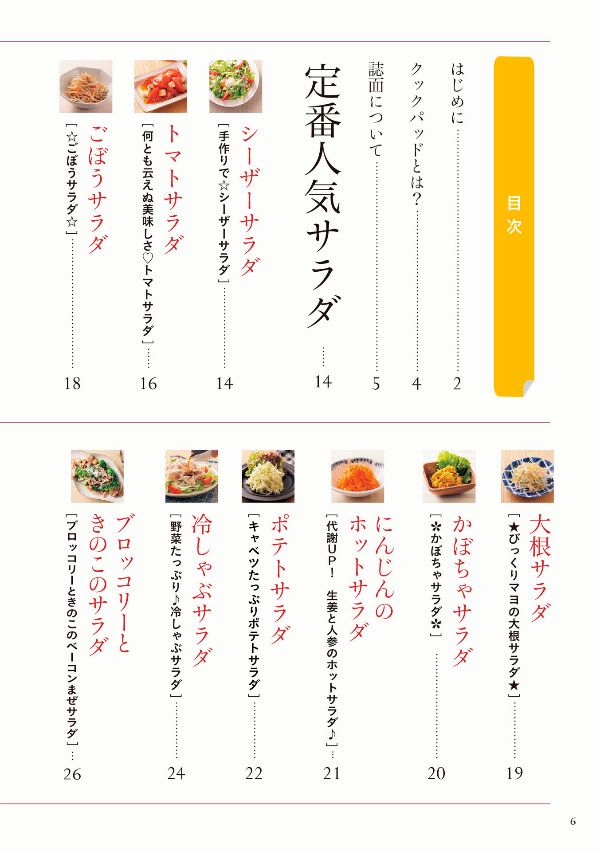 目次
はじめに……2
クックパッドとは？……4
誌面について……5
定番人気サラダ……14
シーザーサラダ
［手作りで☆シーザーサラダ］……14
トマトサラダ
［何とも云えぬ美味しさ♡トマトサラダ］……16
ごぼうサラダ
［☆ごぼうサラダ☆］……18
大根サラダ
［★びっくりマヨの大根サラダ★］……19
かぼちゃサラダ
［✲かぼちゃサラダ✲］……20
にんじんの
ホットサラダ
［代謝UP！　生姜と人参のホットサラダ♪］…21
ポテトサラダ
［キャベツたっぷりポテトサラダ］……22
冷しゃぶサラダ
［野菜たっぷり♪冷しゃぶサラダ］……24
ブロッコリーと
きのこのサラダ
［ブロッコリーときのこのベーコンまぜサラダ］…26
6